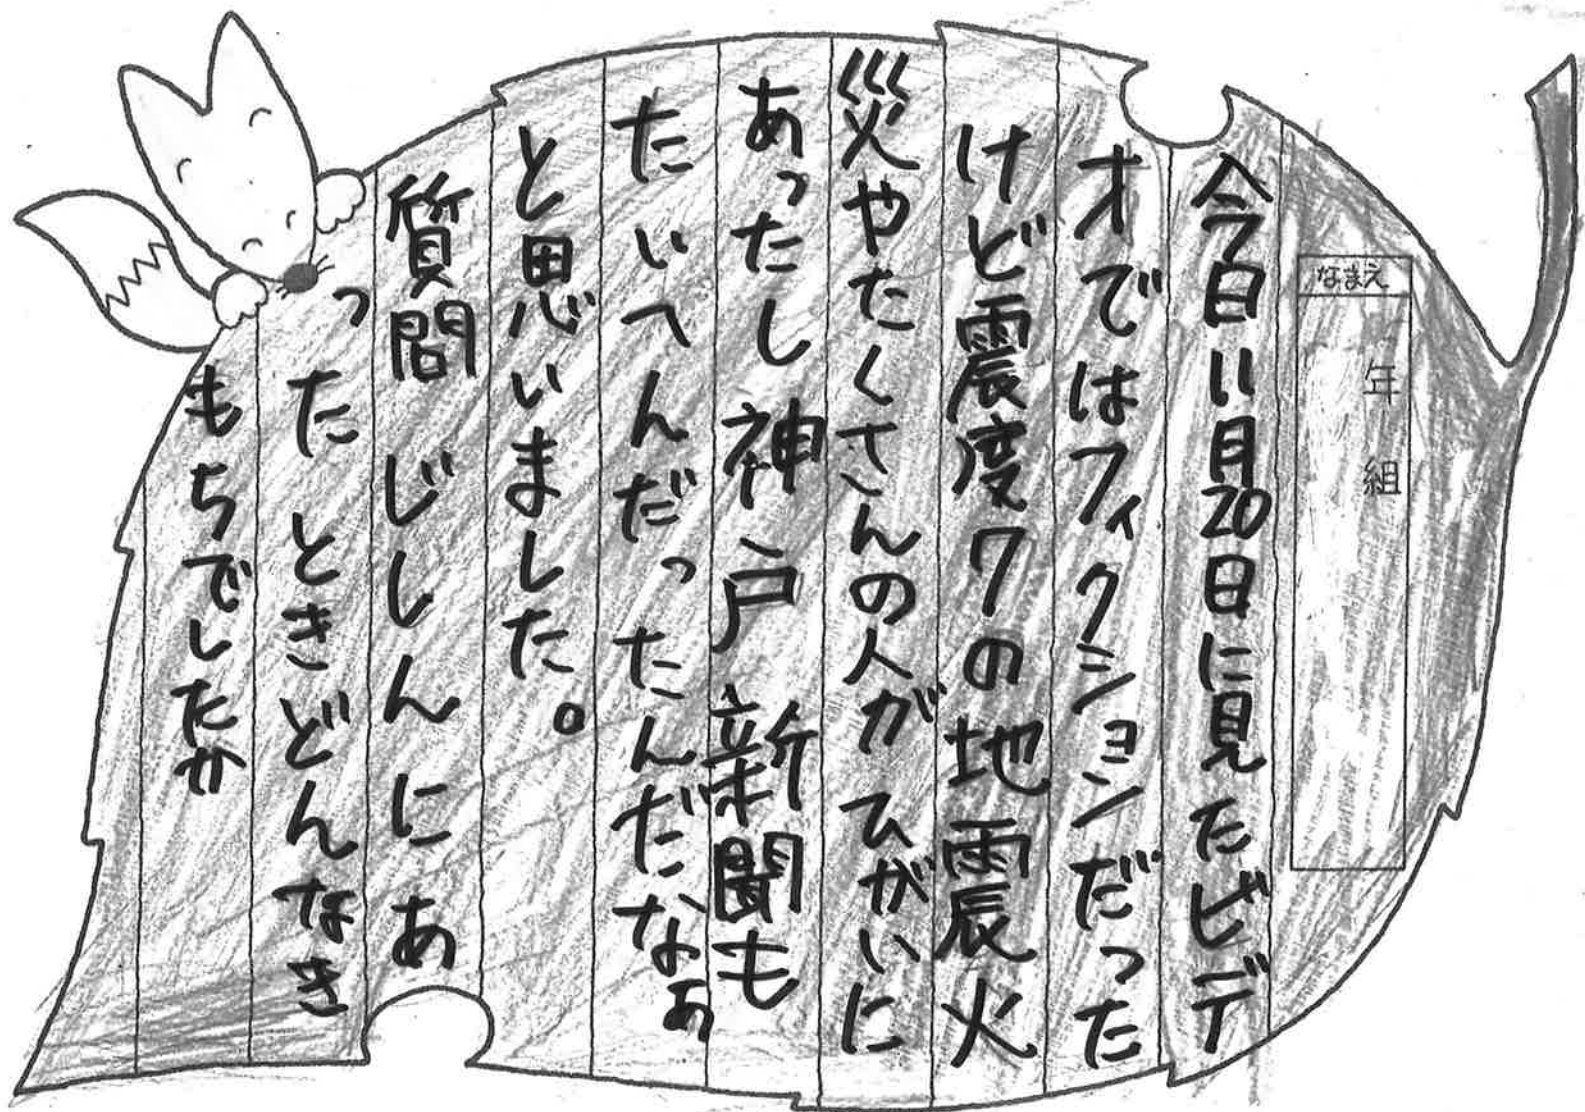 なまえ
年 組
今日11月20日に見たビデ
オではフィクションだった
けど震度7の地震火
災やたくさんの人がひがいに
あったし神戸新聞も
たいへんだったんだなぁ
と思いました。
質問 じしんにあ
ったときどんなき
もちでしたか